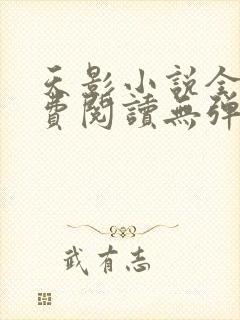 天影小說全
費閱讀無彈
武有志